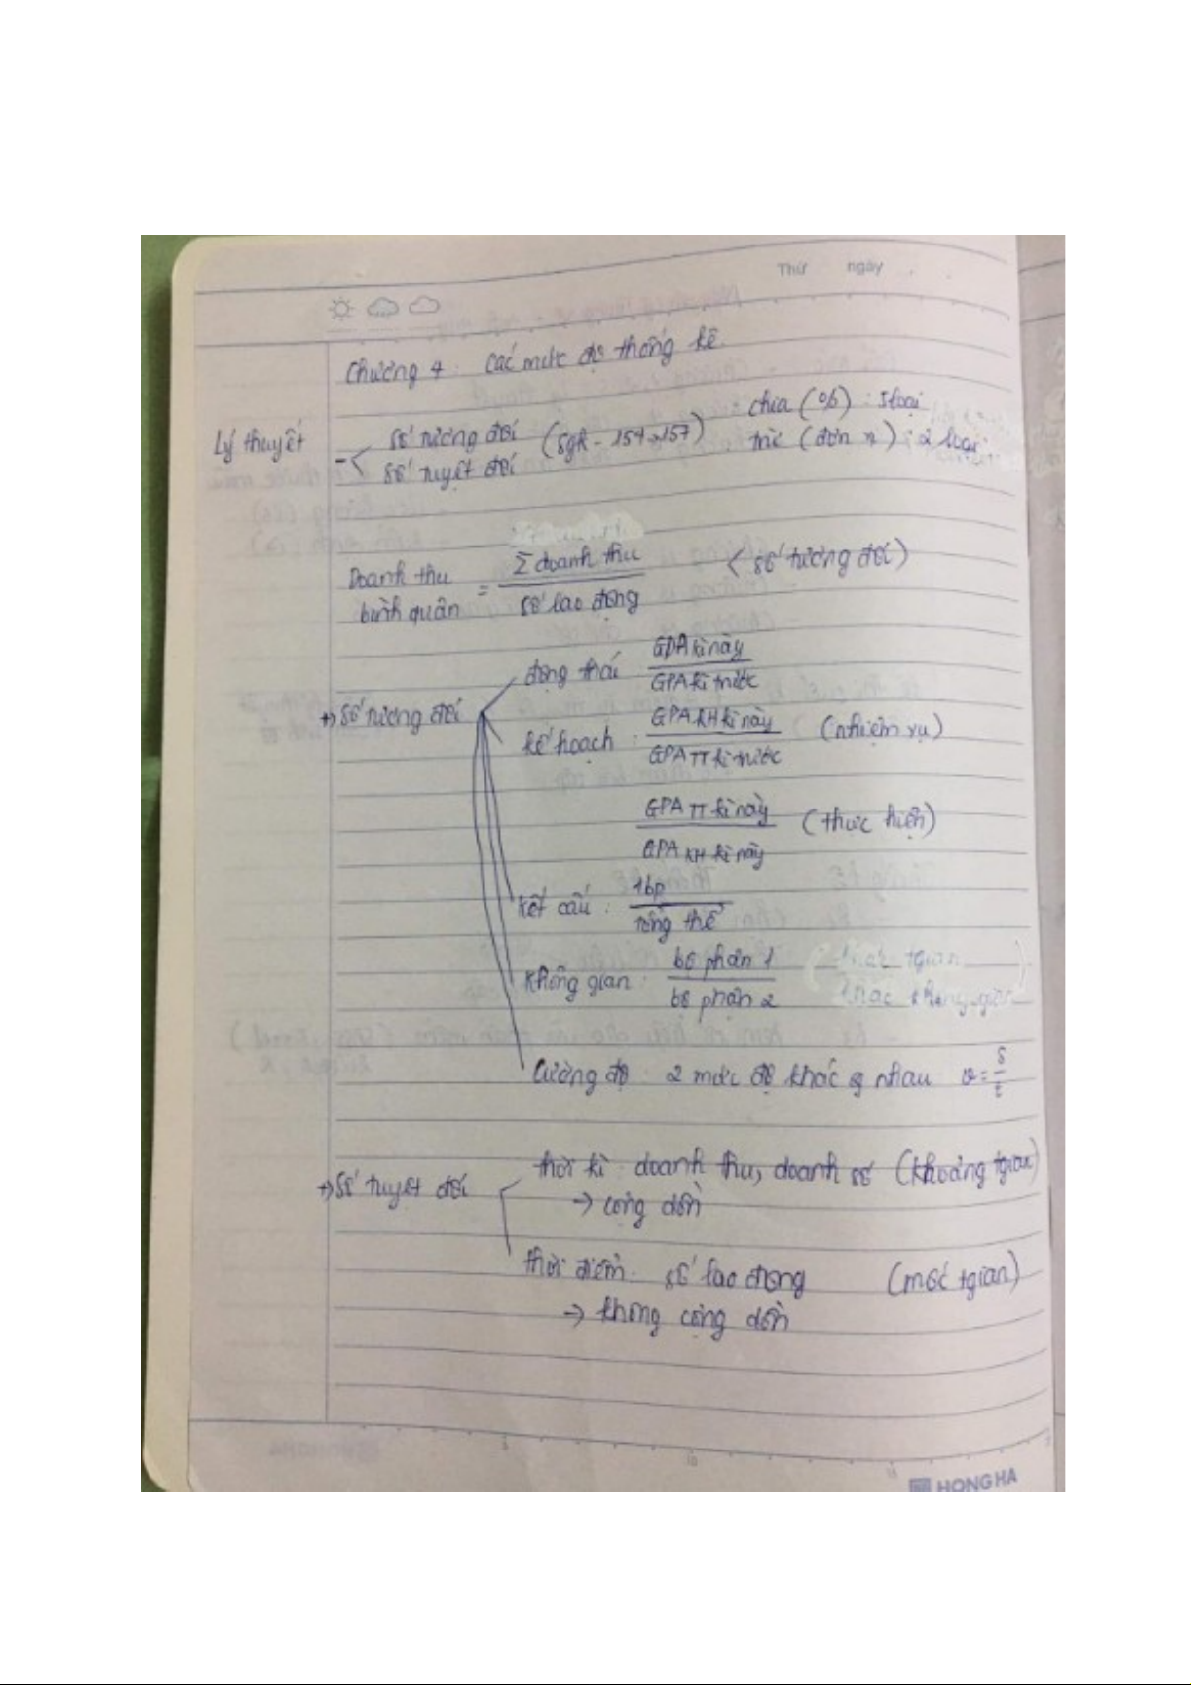 Thứ ngày
Chương 4: Các mức độ thống kê
Lý thuyết
- < Số tương đối (Sgk - 154→157) : chia (%) : 5 loại
Số tuyệt đối trừ (đơn vị) : 2 loại
Doanh thu bình quân = Σ doanh thu / số lao động (số tương đối)
→ Số tương đối
động thái GPA kì này / GPA kì trước
kế hoạch : GPA KH kì này / GPA TT kì trước (nhiệm vụ)
GPA TT kì này / GPA KH kì này (thực hiện)
kết cấu : 1bp / tổng thể
không gian : bộ phận 1 / bộ phận 2 khác tgian
khác không gian
Cường độ : 2 mức độ khác nhau v = s/t
→ Số tuyệt đối
thời kì : doanh thu, doanh số (khoảng tgian)
→ cộng dồn
thời điểm : số lao động (mốc tgian)
→ không cộng dồn
HONG HA